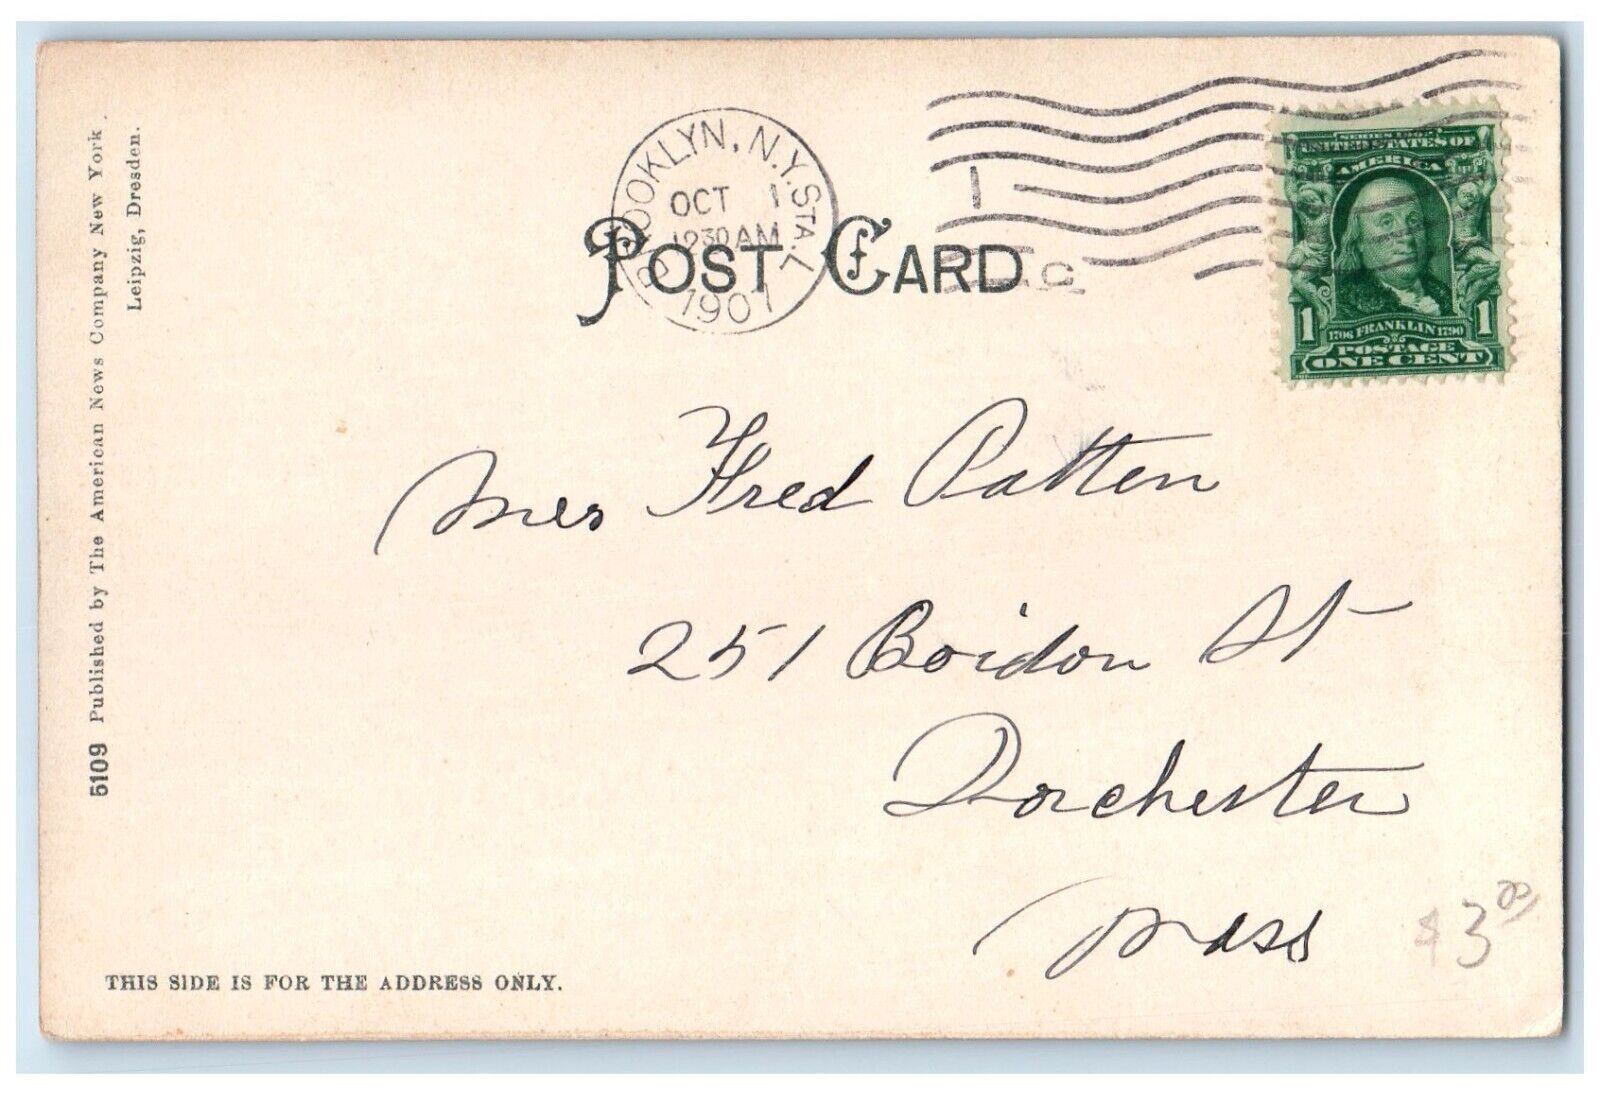 BROOKLYN, N.Y. STA. L
OCT 1
1230 AM
1907
1
C
POST CARD
SERIES 1902
UNITED STATES OF
AMERICA
1 1
1706 FRANKLIN 1790
POSTAGE
ONE CENT
Mrs Fred Patten
251 Boidon St
Dorchester
Mass
$3.00
5109 Published by The American News Company New York.
Leipzig, Dresden.
THIS SIDE IS FOR THE ADDRESS ONLY.